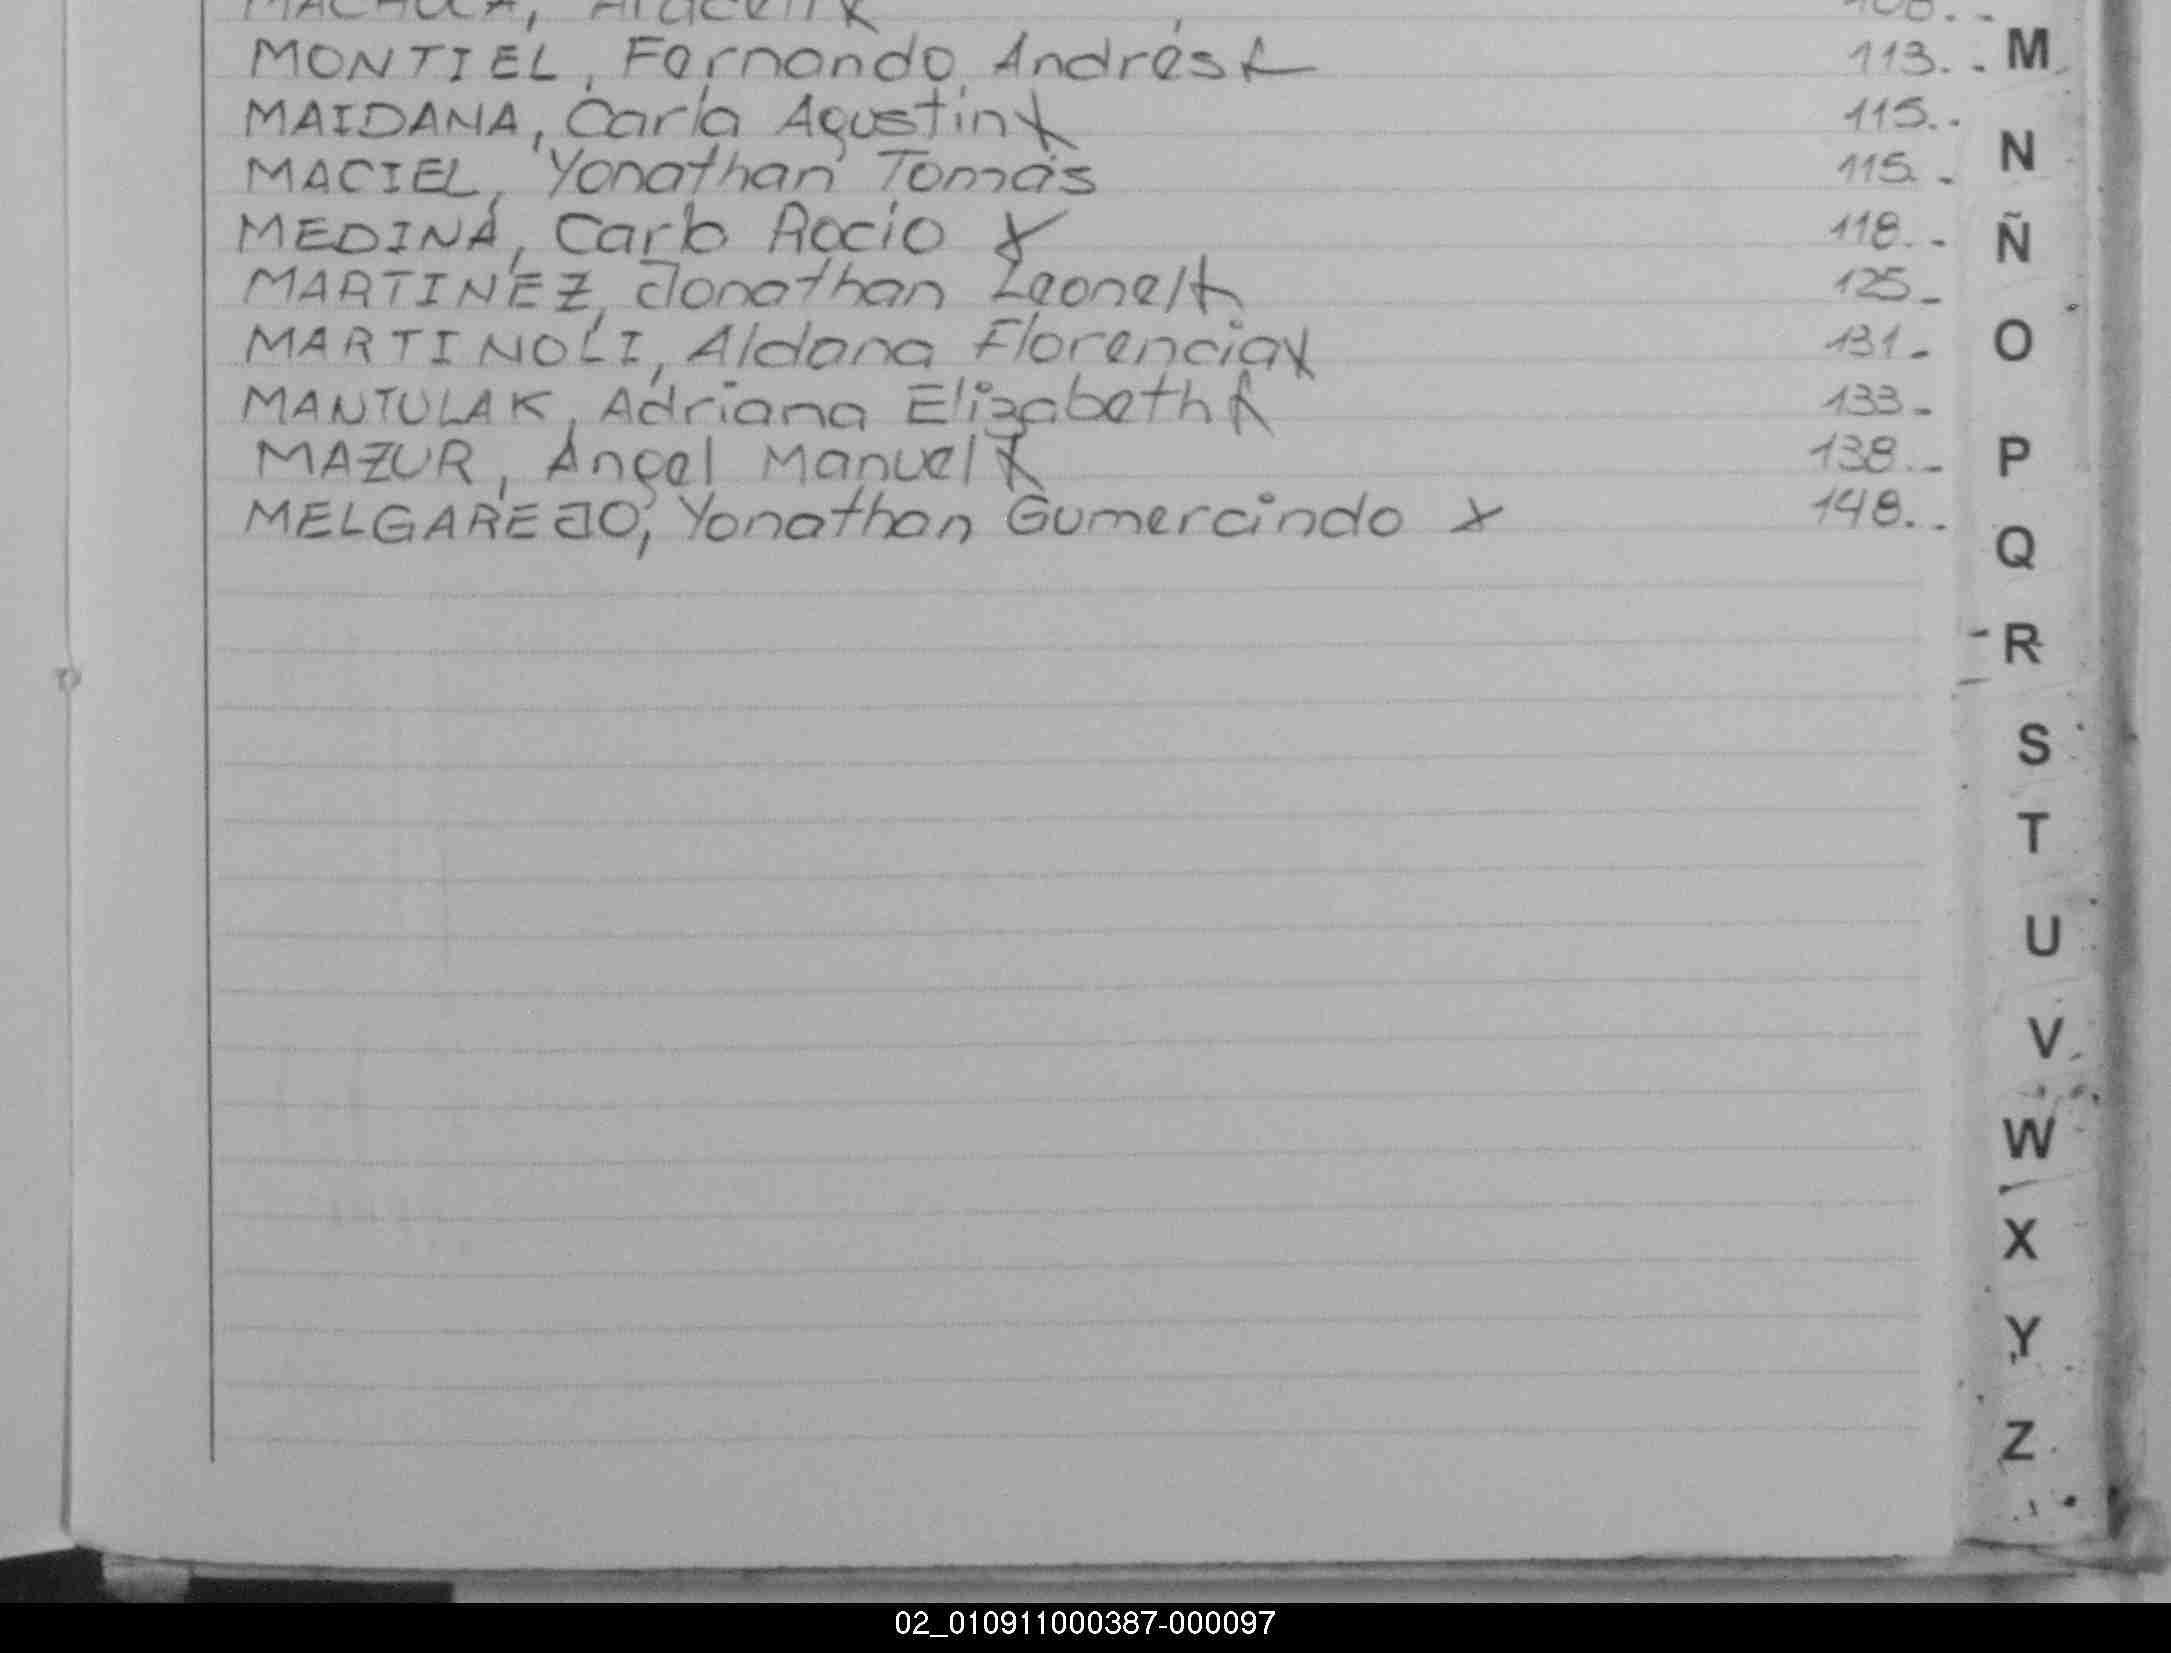 MACHUCA, Araceli x 108. -
MONTIEL, Fernando Andrés x 113. . M
MAIDANA, Carla Agustina x 115. .
MACIEL, Yonathan Tomás 115. - N
MEDINA, Carla Rocio x 118. - Ñ
MARTINEZ, Jonathan Leonel x 125 -
MARTINOLI, Aldana Florencia x 131 - O
MANTULAK, Adriana Elizabeth x 133 -
MAZUR, Ángel Manuel x 138. - P
MELGAREJO, Yonathan Gumercindo x 148. .
Q
R
S
T
U
V
W
X
Y
Z
02_010911000387-000097